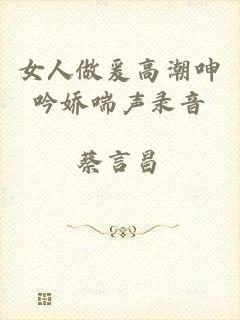 女人做爰高潮呻
吟娇喘声录音
蔡言昌